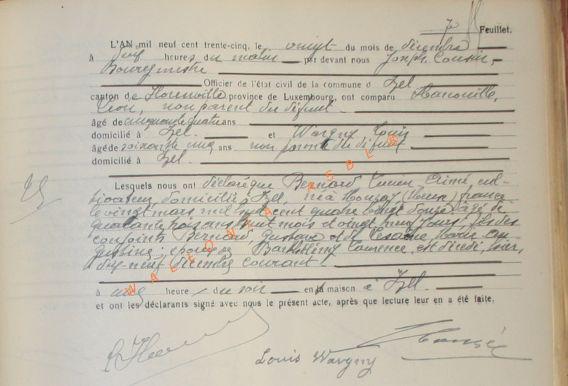 Feuillet.
L'AN mil neuf cent trente-cinq, le vingt du mois de décembre
à neuf heures du matin par devant nous Joseph
Bourgmestre
Officier de l'état civil de la commune d'Izel
canton de Florenville province de Luxembourg, ont comparu
Léon, non parent du défunt
âgé de cinquante quatre ans
domicilié à Izel et Wargny Louis
âgé de soixante cinq ans non parent du défunt
domicilié à Izel
Lesquels nous ont déclaré que Bernard Lucien Aimé, cul-
tivateur, domicilié à Izel, né à Mouzay (Meuse) France
le vingt mars mil huit cent quatre vingt douze âgé de
quarante trois ans huit mois et vingt neuf jours, fils des
conjoints Bernard Gustave et de Marie
époux de Barthélemy Laurence, est décédé hier,
dix-neuf décembre courant
à cinq heures du soir en sa maison à Izel
et ont les déclarants signé avec nous le présent acte, après que lecture leur en a été faite,
Louis Wargny